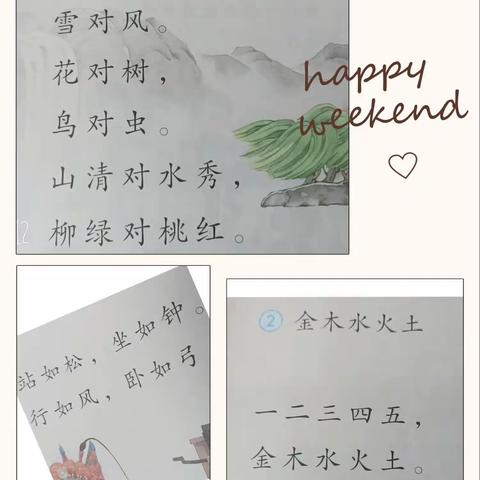 雪对风。
花对树，
鸟对虫。
山清对水秀，
柳绿对桃红。
12
happy
weekend
站如松，坐如钟。
行如风，卧如弓
2 金木水火土
一二三四五，
金木水火土。